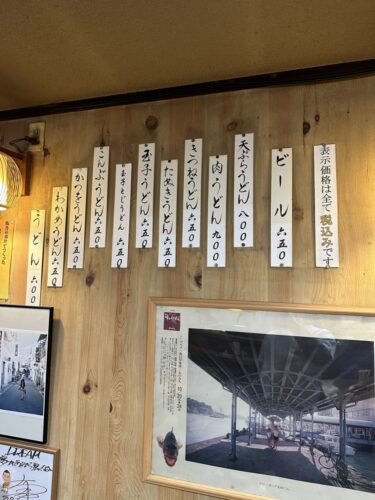 表示価格は全て税込みです
ビール 六五〇
天ぷらうどん 八〇〇
肉うどん 九〇〇
きつねうどん 六五〇
たぬきうどん 六五〇
玉子うどん 六五〇
玉子とじうどん 六五〇
こんぶうどん 六五〇
かつをうどん 六五〇
わかめうどん 六五〇
うどん 六〇〇